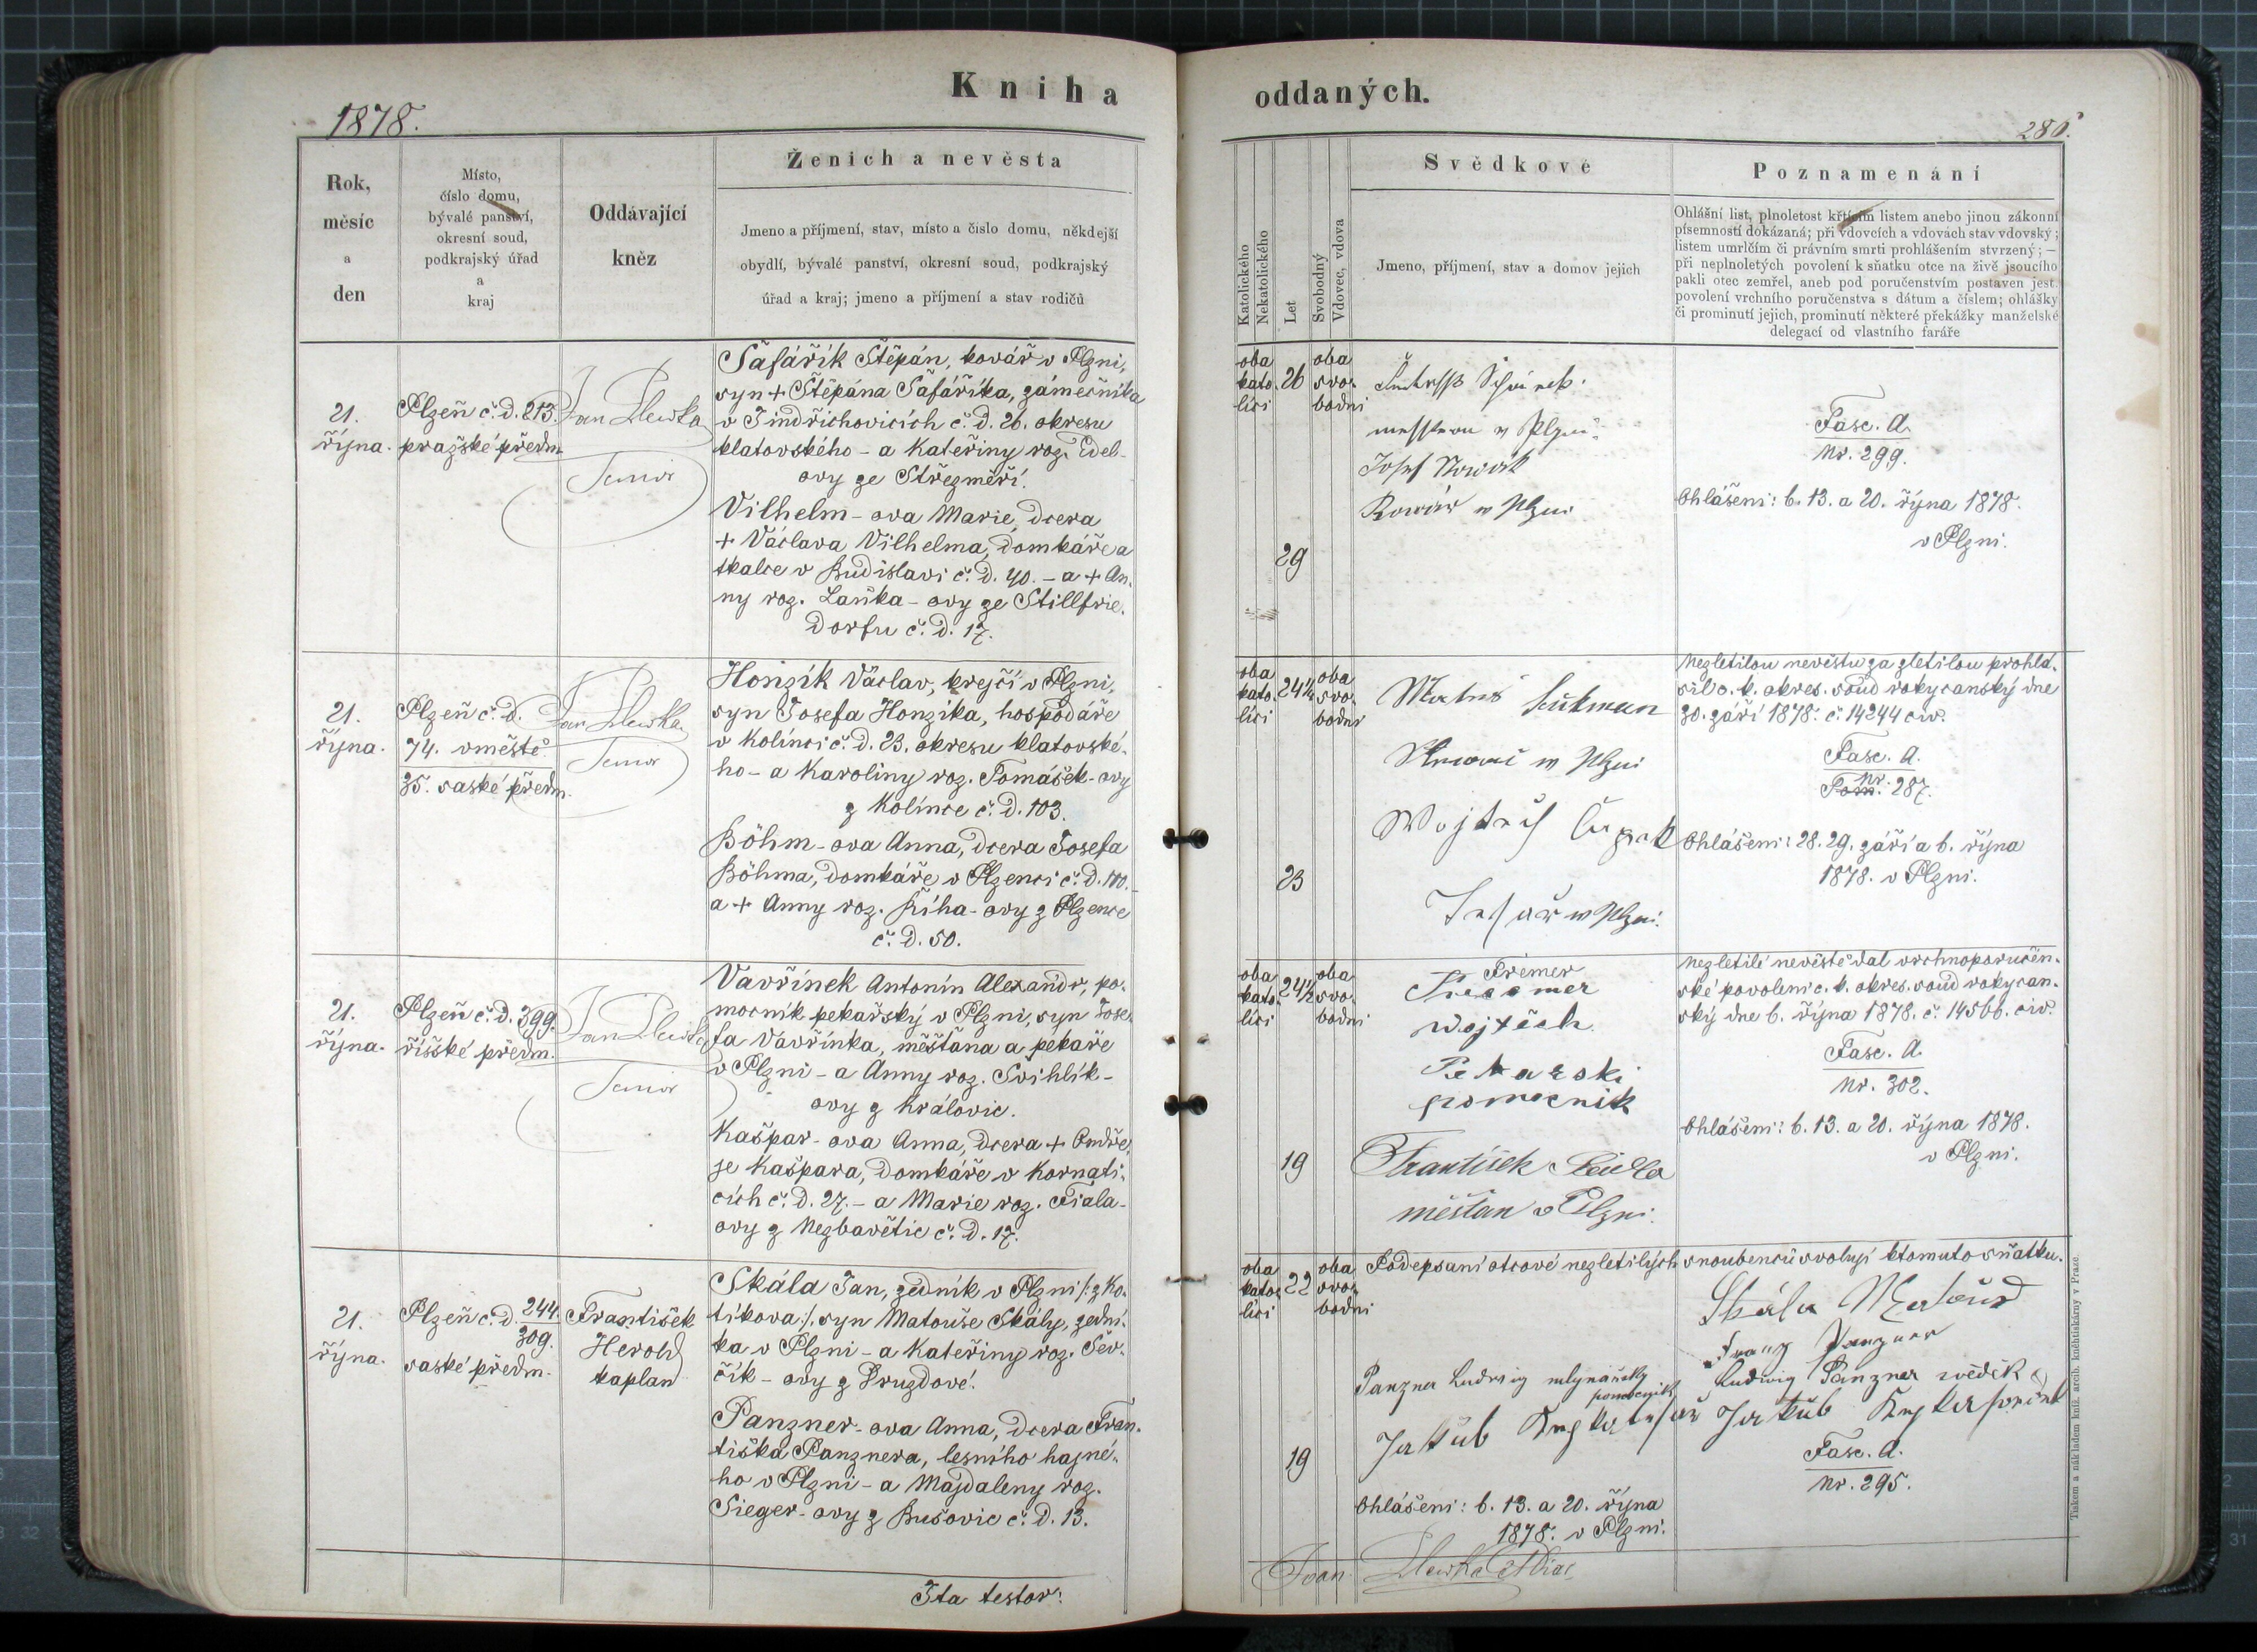 Kniha oddaných.
1878.
286.
Rok,
měsíc
a
den
Místo,
číslo domu,
bývalé panství,
okresní soud,
podkrajský úřad
a
kraj
Oddávající
kněz
Ženich a nevěsta
Jmeno a příjmení, stav, místo a číslo domu, někdejší
obydlí, bývalé panství, okresní soud, podkrajský
úřad a kraj; jmeno a příjmení a stav rodičů
Katolického
Nekatolického
Let
Svobodný
Vdovec, vdova
Svědkové
Jmeno, příjmení, stav a domov jejich
Poznamenání
Ohlášní list, plnoletost křticím listem anebo jinou zákonní
písemností dokázaná; při vdovcích a vdovách stav vdovský;
listem umrlčím či právním smrti prohlášením stvrzený; —
při neplnoletých povolení k sňatku otce na živě jsoucího
pakli otec zemřel, aneb pod poručenstvím postaven jest.
povolení vrchního poručenstva s dátum a číslem; ohlášky
či prominutí jejich, prominutí některé překážky manželské
delegací od vlastního faráře
21.
října.
Plzeň č. d. 213.
pražské předm.
Jan Žlewka
Senior
Šafářík Štěpán, kovář v Plzni,
syn + Štěpána Šafáříka, zámečníka
v Jindřichovicích č. d. 26. okresu
klatovského - a Kateřiny roz. Edel-
ovy ze Střezměří.
Vilhelm - ova Marie, dcera
+ Václava Vilhelma, domkáře a
tkalce v Budislavi č. d. 40. - a + An-
ny roz. Laňka - ovy ze Stillfrie-
dorfu č. d. 17.
oba
kato-
líci
26
29
oba
svo-
bodni
Josef Nowák
Kowář w Plzni
Fasc. A.
Nr. 299.
Ohlášeni: 6. 13. a 20. října 1878.
v Plzni.
21.
října.
Plzeň č. d.
74. v městě
35. saské předm.
Jan Žlewka
Senior
Honzík Václav, krejčí v Plzni,
syn Josefa Honzíka, hospodáře
v Kolínci č. d. 23. okresu klatovské-
ho - a Karoliny roz. Tomášek - ovy
z Kolínce č. d. 103.
Böhm - ova Anna, dcera Josefa
Böhma, domkáře v Plzenci č. d. 110. -
a + Anny roz. Říha - ovy z Plzence
č. d. 50.
oba
kato-
líci
24½
23
oba
svo-
bodni
w Plzni
w Plzni.
Nezletilou nevěstu za zletilou prohlá-
sil c. k. okres. soud rokycanský dne
30. září 1878. č. 14244 civ.
Fasc. A.
Nr.
Tom. 287.
Ohlášeni: 28. 29. září a 6. října
1878. v Plzni.
21.
října.
Plzeň č. d. 399.
říšské předm.
Jan Žlewka
Senior
Vavřínek Antonín Alexandr, po-
mocník pekařský v Plzni, syn Jose-
fa Vavřínka, měšťana a pekaře
v Plzni - a Anny roz. Švihlík -
ovy z Královic.
Kašpar - ova Anna, dcera + Ondře-
je Kašpara, domkáře v Kornati-
cích č. d. 27. - a Marie roz. Fiala -
ovy z Nezbavětic č. d. 17.
oba
kato-
líci
24½
19
oba
svo-
bodni
Frémer
wojtěch
Pekarski
pomocnik
František
měšťan v Plzni.
Nezletilé nevěstě dal vrchnoporučen-
ské povoleni c. k. okres. soud rokycan-
ský dne 6. října 1878. č. 14566. civ.
Fasc. A.
Nr. 302.
Ohlášeni: 6. 13. a 20. října 1878.
v Plzni.
21.
října.
Plzeň č. d. 244.
309.
saské předm.
František
Herold
kaplan
Skála Jan, zedník v Plzni /: z Ko-
tíkova :/, syn Matouše Skály, zední-
ka v Plzni - a Kateřiny roz. Šev-
čík - ovy z Druzdové.
Panzner - ova Anna, dcera Fran-
tiška Panznera, lesního hajné-
ho v Plzni - a Majdaleny roz.
Sieger - ovy z Bušovic č. d. 13.
oba
kato-
líci
22
19
oba
svo-
bodni
Podepsaní otcové nezletilých snoubenců svolují k tomuto sňatku.
Skála Matouš
Franz Panzner
Panzner Ludwig mlynářský
pomocník
Ludwig Panzner svědek
Jakub
Jakub
Fasc. A.
Nr. 295.
Ohlášeni: 6. 13. a 20. října
1878. v Plzni.
Ita testor:
Joan. Žlewka
Tiskem a nákladem kníž. arcib. knihtiskárny v Praze.